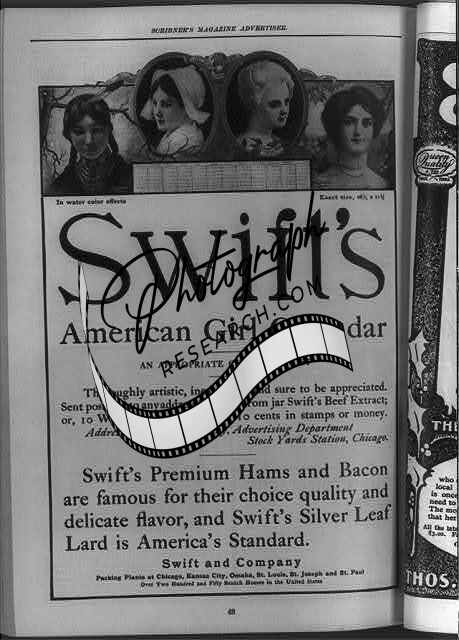 SCRIBNER'S MAGAZINE ADVERTISER.
In water color effects
Swift's
American Girl dar
AN APPROPRIATE
Thoroughly artistic, and sure to be appreciated.
Sent from jar Swift's Beef Extract;
or, 10 cents in stamps or money.
Advertising Department
Stock Yards Station, Chicago.
Photograph
RESEARCH.COM
Swift's Premium Hams and Bacon
are famous for their choice quality and
delicate flavor, and Swift's Silver Leaf
Lard is America's Standard.
Swift and Company
Packing Plants at Chicago, Kansas City, Omaha, St. Louis, St. Joseph and St. Paul
Over Two Hundred and Fifty Branch Houses in the United States
Queen
Quality
TH
who
local
is once
need to
The mo
that her
All the late
$3.00.
THOS.